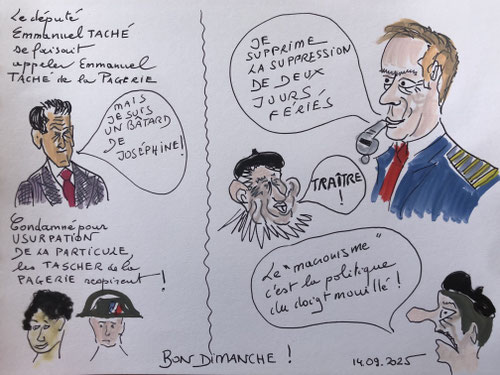 Le député
Emmanuel TACHÉ
se faisait
appeler Emmanuel
TACHÉ de la PAGERIE
MAIS
JE SUIS
UN BÂTARD
DE
JOSÉPHINE !
Condamné pour
USURPATION
DE LA PARTICULE
les TASCHER de la
PAGERIE respirent !
JE
SUPPRIME
LA SUPPRESSION
DE DEUX
JOURS
FÉRIÉS
TRAÎTRE
!
Le "macronisme"
c'est la politique
du doigt mouillé !
BON DIMANCHE !
14.09.2025